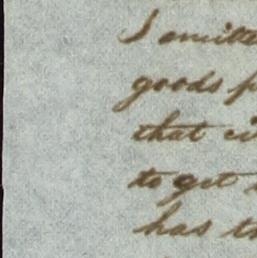 I omitte
goods p
that ci
to get
has th